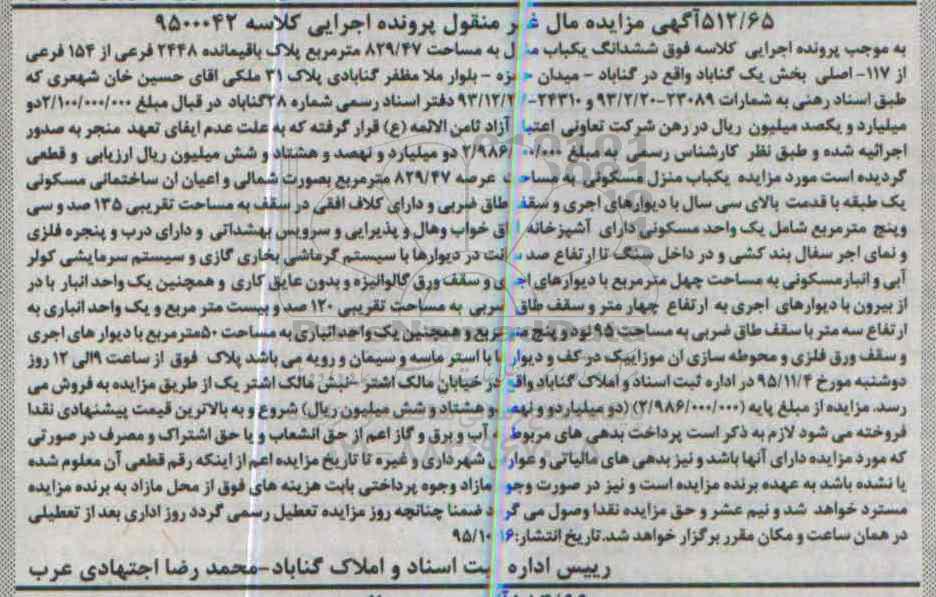 ۵۱۲/۶۵آگهی مزایده مال غیر منقول پرونده اجرایی کلاسه ۹۵۰۰۰۴۲
به موجب پرونده اجرایی کلاسه فوق ششدانگ یکباب منزل به مساحت ۸۲۹/۴۷ مترمربع پلاک باقیمانده ۲۴۴۸ فرعی از ۱۵۴ فرعی
از ۱۱۷- اصلی بخش یک گناباد واقع در گناباد - میدان حمزه - بلوار ملا مظفر گنابادی پلاک ۳۱ ملکی اقای حسین خان شهعری که
طبق اسناد رهنی به شمارات ۲۳۰۸۹-۹۳/۲/۲۰ و ۲۴۳۱۰-۹۳/۱۲/۲ دفتر اسناد رسمی شماره ۲۸گناباد در قبال مبلغ ۲/۱۰۰/۰۰۰/۰۰۰دو
میلیارد و یکصد میلیون ریال در رهن شرکت تعاونی اعتبار آزاد ثامن الائمه (ع) قرار گرفته که به علت عدم ایفای تعهد منجر به صدور
اجرائیه شده و طبق نظر کارشناس رسمی به مبلغ ۲/۹۸۶/۰۰۰/۰۰۰ دو میلیارد و نهصد و هشتاد و شش میلیون ریال ارزیابی و قطعی
گردیده است مورد مزایده یکباب منزل مسکونی به مساحت عرصه ۸۲۹/۴۷ مترمربع بصورت شمالی و اعیان ان ساختمانی مسکونی
یک طبقه با قدمت بالای سی سال با دیوارهای اجری و سقف طاق ضربی و دارای کلاف افقی در سقف به مساحت تقریبی ۱۳۵ صد و سی
وپنج مترمربع شامل یک واحد مسکونی دارای آشپزخانه اتاق خواب وهال و پذیرایی و سرویس بهشداتی و دارای درب و پنجره فلزی
و نمای اجر سفال بند کشی و در داخل سنگ تا ارتفاع صد سانت در دیوارها با سیستم گرمایشی بخاری گازی و سیستم سرمایشی کولر
آبی و انبارمسکونی به مساحت چهل مترمربع با دیوارهای اجری و سقف ورق گالوانیزه و بدون عایق کاری و همچنین یک واحد انبار با در
از بیرون با دیوارهای اجری به ارتفاع چهار متر و سقف طاق ضربی به مساحت تقریبی ۱۲۰ صد و بیست متر مربع و یک واحد انباری به
ارتفاع سه متر با سقف طاق ضربی به مساحت ۹۵ نود و پنج مترمربع و همچنین یک واحد انباری به مساحت ۵۰مترمربع با دیوار های اجری
و سقف ورق فلزی و محوطه سازی ان موزاییک در کف و دیوارها با استر ماسه و سیمان و رویه می باشد پلاک فوق از ساعت ۹الی ۱۲ روز
دوشنبه مورخ ۹۵/۱۱/۴ در اداره ثبت اسناد و املاک گناباد واقع در خیابان مالک اشتر - نبش مالک اشتر یک از طریق مزایده به فروش می
رسد. مزایده از مبلغ پایه (۲/۹۸۶/۰۰۰/۰۰۰) (دو میلیارد و نهصد و هشتاد و شش میلیون ریال) شروع و به بالاترین قیمت پیشنهادی نقدا
فروخته می شود لازم به ذکر است پرداخت بدهی های مربوط به آب و برق و گاز اعم از حق انشعاب و یا حق اشتراک و مصرف در صورتی
که مورد مزایده دارای آنها باشد و نیز بدهی های مالیاتی و عوارض شهرداری و غیره تا تاریخ مزایده اعم از اینکه رقم قطعی آن معلوم شده
یا نشده باشد به عهده برنده مزایده است و نیز در صورت وجود مازاد وجوه پرداختی بابت هزینه های فوق از محل مازاد به برنده مزایده
مسترد خواهد شد و نیم عشر و حق مزایده نقدا وصول می گردد ضمنا چنانچه روز مزایده تعطیل رسمی گردد روز اداری بعد از تعطیلی
در همان ساعت و مکان مقرر برگزار خواهد شد.تاریخ انتشار:۹۵/۱۰/۱۶
رییس اداره ثبت اسناد و املاک گناباد-محمد رضا اجتهادی عرب